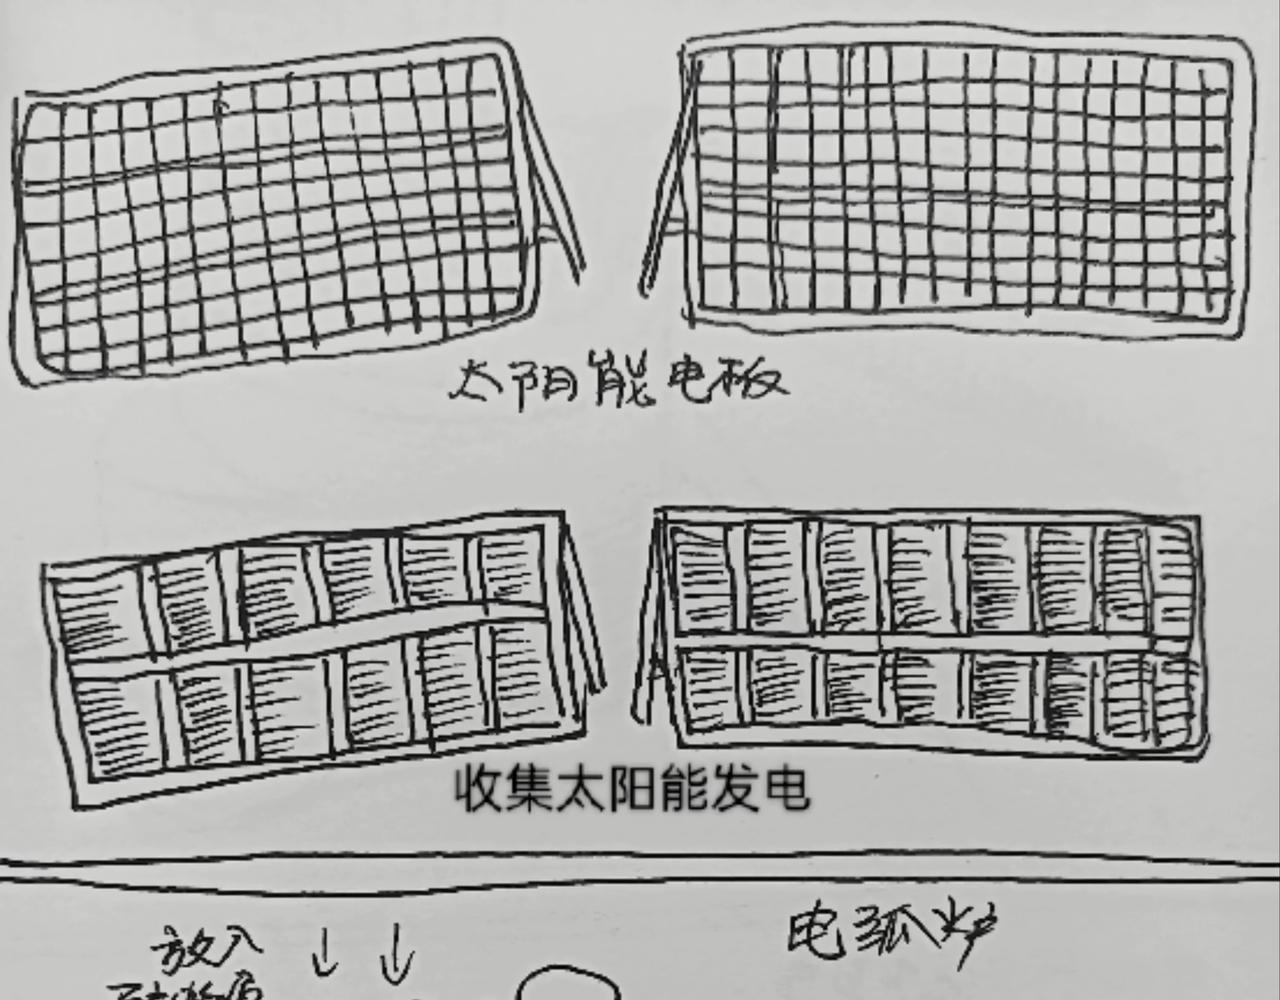 太阳能电板
收集太阳能发电
电弧炉
放入